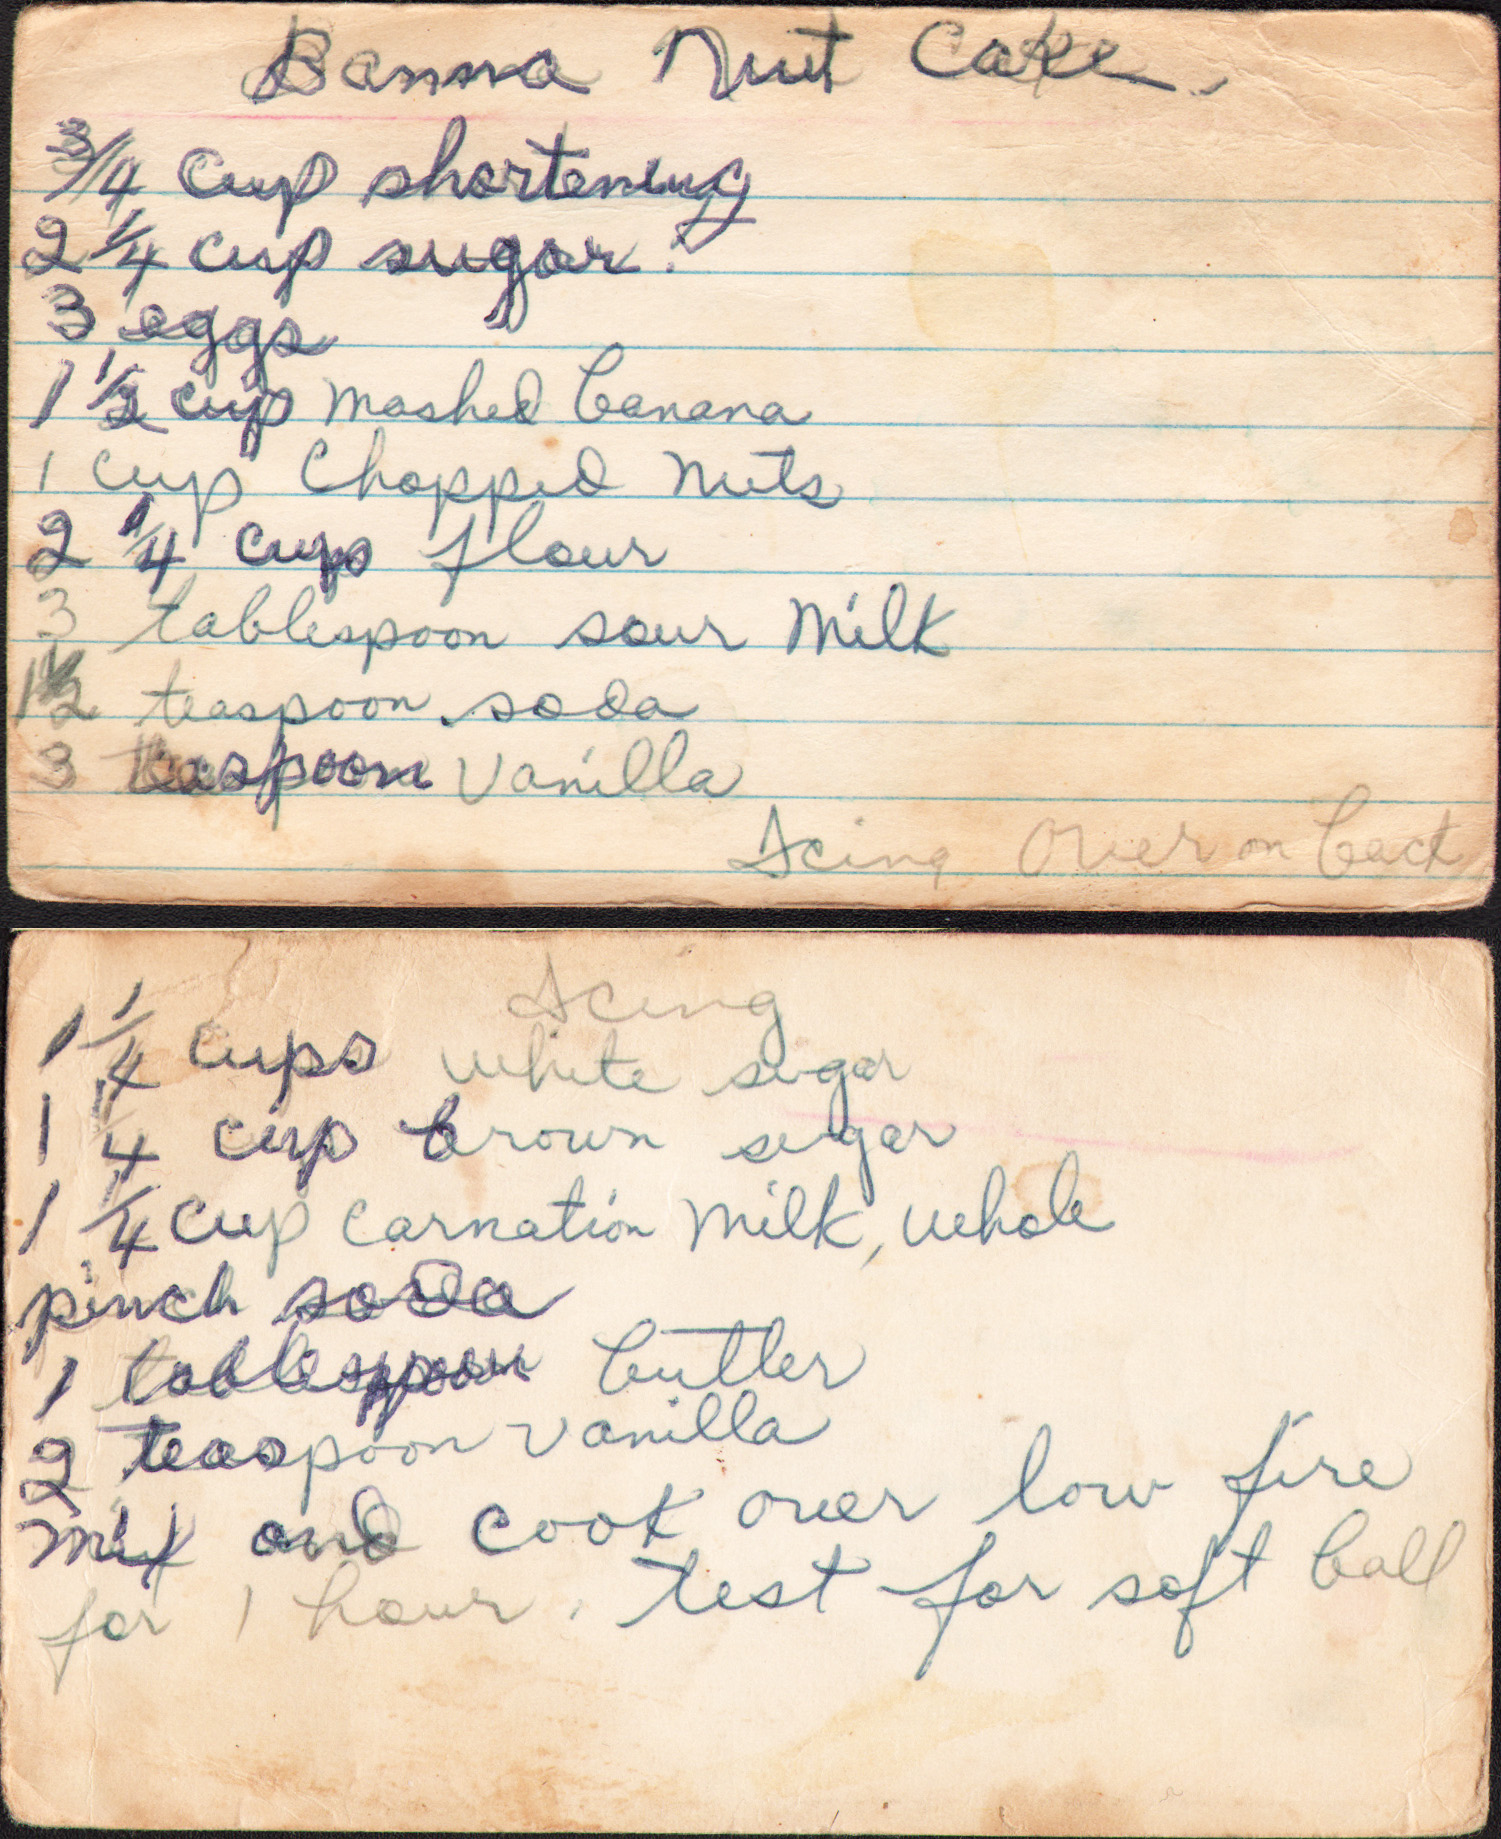 Banna Nut Cake.
3/4 cup shortening
2 1/4 cup sugar.
3 eggs
1 1/2 cup mashed banana
1 cup Chopped Nuts
2 1/4 cup flour
3 tablespoon sour Milk
1 1/2 teaspoon soda
3 teaspoon Vanilla
Icing Over on back
Icing
1 1/4 cups white sugar
1 1/4 cup brown sugar
1 1/4 cup carnation Milk, whole
pinch soda
1 tablespoon butter
2 teaspoon vanilla
Mix and cook over low fire
for 1 hour. test for soft ball